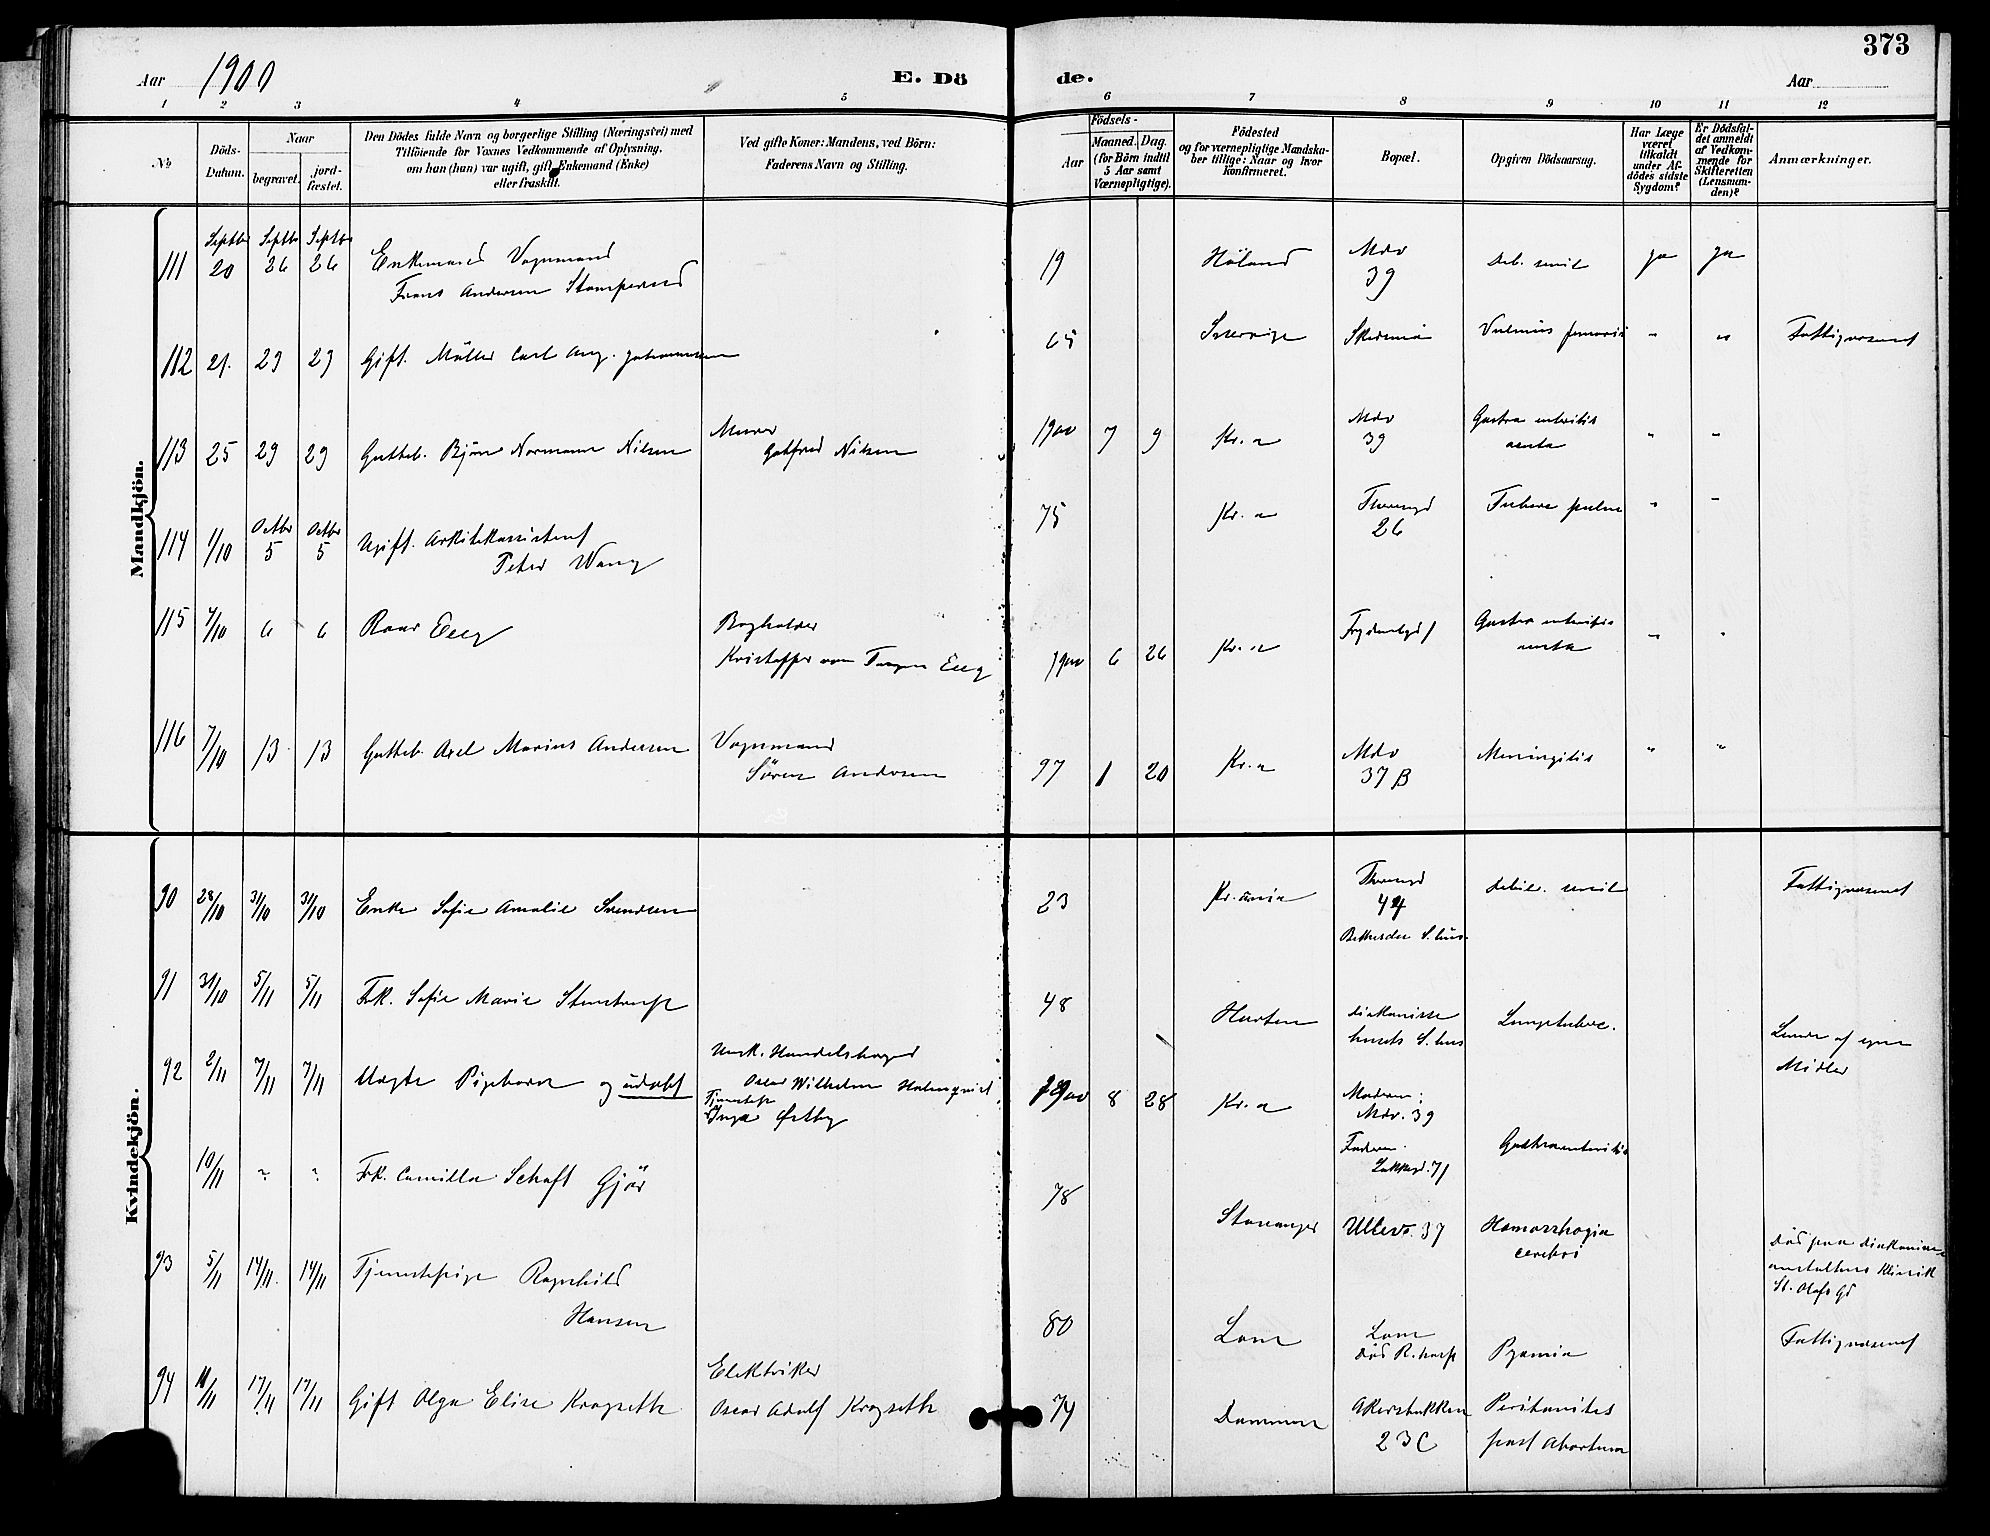 373
Aar 1900
E. Dö de.
Aar
1 2 3 4 5 6 7 8 9 10 11 12
No
Döds-Datum.
Naar
begravet.
jord-fæstet.
Den Dödes fulde Navn og borgerlige Stilling (Næringsvei) med
Tilföiende for Voxnes Vedkommende af Oplysning,
om han (hun) var ugift, gift, Enkemand (Enke)
eller fraskilt.
Ved gifte Koner: Mandens, ved Börn:
Faderens Navn og Stilling.
Födsels-
Aar
Maaned. Dag.
(for Börn indtil
5 Aar samt
Værnepligtige).
Födested
og for værnepligtige Mandska-
ber tillige: Naar og hvor
konfirmeret.
Bopæl.
Opgiven Dödsaarsag.
Har Læge
været
tilkaldt
under Af-
dödes sidste
Sygdom?
Er Dödsfal-
det anmeldt
af Vedkom-
mende for
Skifteretten
(Lensman-
den)?
Anmærkninger.
Mandkjön.
Septbr Septbr Septbr
111 20 26 26 Enkemand Vognmand
Frans Andersen Stomperud
19 Höland Mdv 39 Deb. senil ja ja
112 21. 29 29 Gift. Möller Carl Aug. Johannessen
65 Sverrige " " Fattigvæsenet
113 25 29 29 Gutteb. Bjön Normann Nilsen
Murer
Gotfred Nilsen
1900 7 9 Kr.a Mdv 39 Gastro enteritis
acuta " "
114 1/10 Octbr 5 Octbr 5 Ugift. Arkitektassistent
Peter Wang
75 Kr.a 26 Tuberc pulm " "
115 4/10 6 6 Roar Eeg
Bogholder
Kristoffer von Tangen Eeg
1900 6 26 Kr.a Gastro enteritis
acuta " "
116 7/10 13 13 Gutteb. Axel Marius Andersen
Vognmand
Sören Andersen
97 1 20 Kr.a Mdv
37 B Meningitis " "
Kvindekjön.
90 28/10 31/10 31/10 Enke Sofie Amalie Svendsen
23 Kr.ania 44
Bethesda S.hus. debil. senil Fattigvæsenet
91 31/10 5/11 5/11 Frk. Sofie Marie Stenstrup
48 Hurten diakonisse
husets S.hus Lungetuberc.
Lever af egne
Midler
92 2/11 7/11 7/11 Uægte Pigebarn og udøbt
Unk. Handelsbogh
Oscar Wilhelm Holmqvist
Tjenestep
Inga Østby
1900 8 28 Kr.a Moderen:
Mdv. 39
Faderen:
Lakkegd. 71 Gastroenteritis
10/11 " " Frk. Camilla Schaft Gjör
78 Stavanger Ullevv. 37 Hæmorrhagia
cerebri
93 5/11 14/11 14/11 Tjenestepige Ragnhild
Hansen
80 Lom Lom
död R.hosp Pyæmia
Död paa diakonisse
anstaltens Klinik
St. Olafs Gd
Fattigvæsenet
94 11/11 17/11 17/11 Gift Olga Elise Krogseth
Elektriker
Oscar Adolf Krogseth
74 Drammen Akersbakken
23 C Peritonites
post Abortum